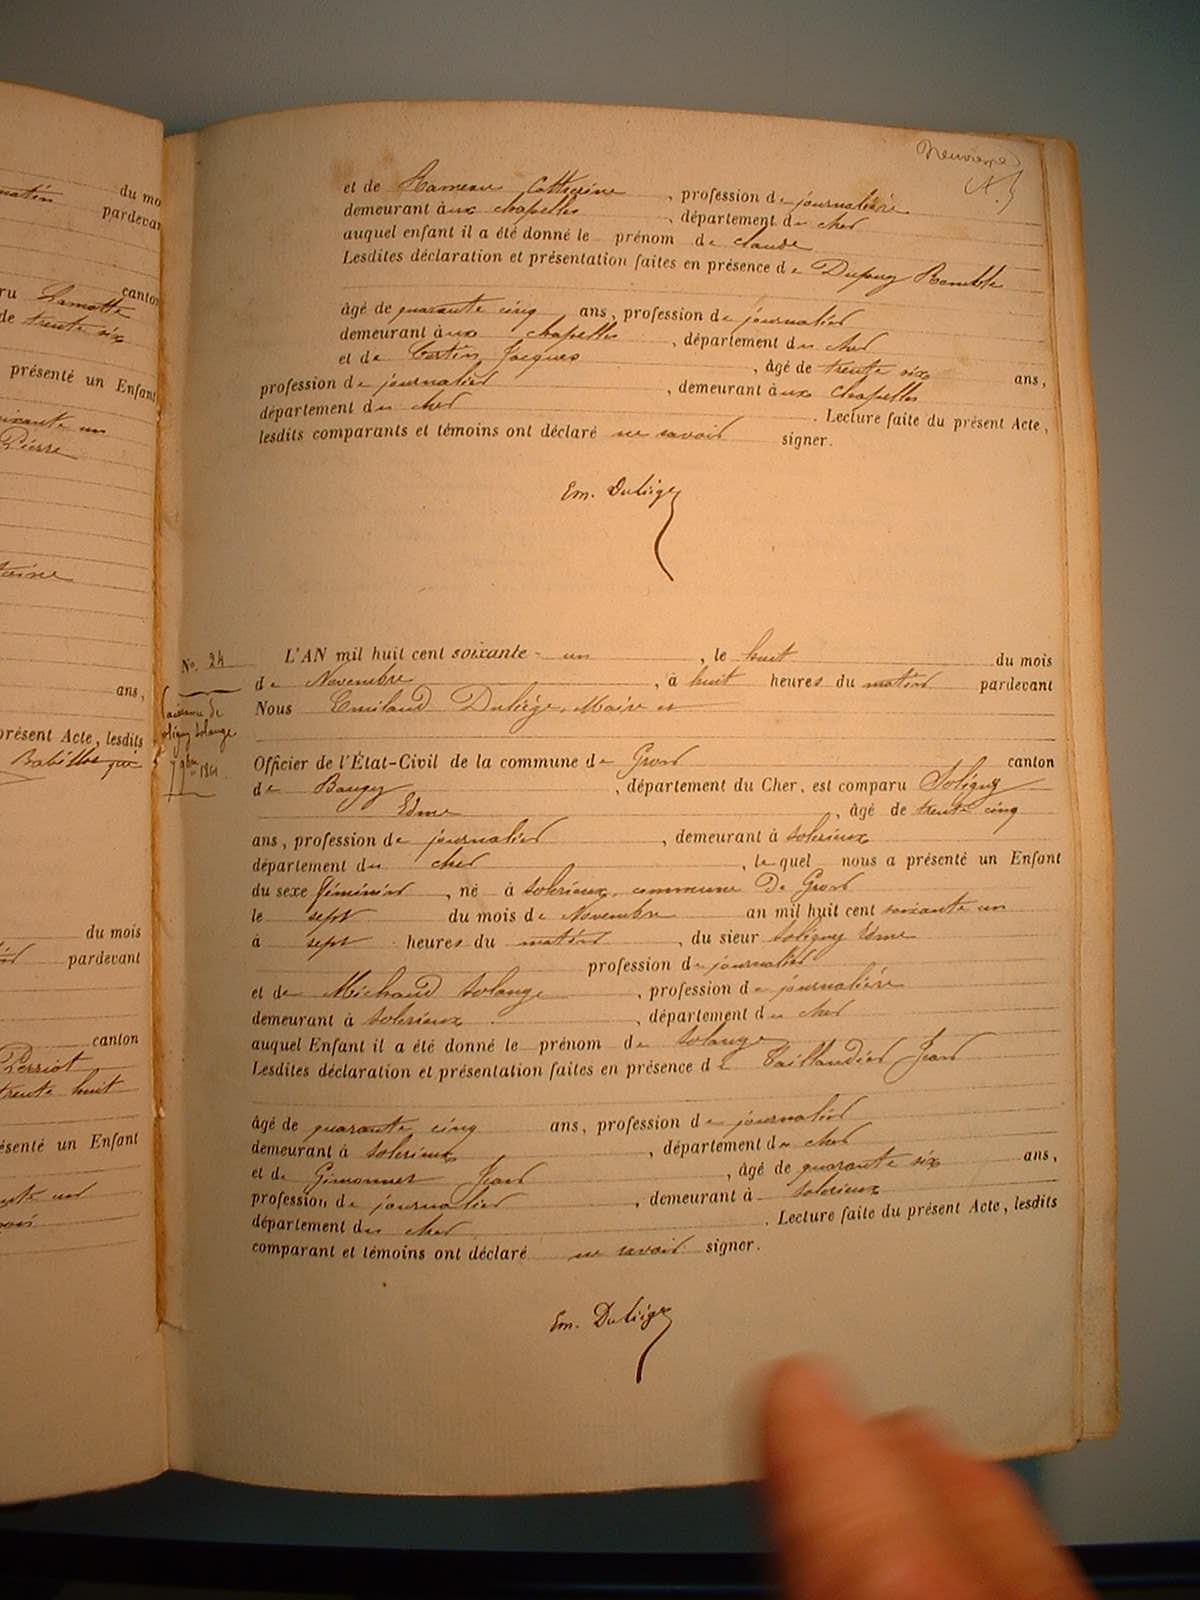 matin du mo
pardevan
ru Lamotte canton
de trente six
présenté un Enfant
soixante un
Pierre
ans,
présent Acte, lesdits
du mois
pardevant
canton
Perriot
trente huit
ésenté un Enfant
Neuvième
et de Rameau Catherine, profession de journalière
demeurant à ux chapelles, département du cher
auquel enfant il a été donné le prénom de claude
Lesdites déclaration et présentation faites en présence de Dupuy
âgé de quarante cinq ans, profession de journalier
demeurant à ux chapelles, département du cher
et de Jacques, âgé de trente six ans,
profession de journalier, demeurant à ux chapelles
département du cher. Lecture faite du présent Acte,
lesdits comparants et témoins ont déclaré ne savoir signer.
Em. Duliège
No. 24
L'AN mil huit cent soixante - un, le huit du mois
de Novembre, à huit heures du matin pardevant
Nous Emiland Duliège, Maire et
Naissance de
Soligny Solange
7 9bre 1861.
Officier de l'État-Civil de la commune de Gron canton
de Baugy, département du Cher, est comparu Soligny
Edme, âgé de trente cinq
ans, profession de journalier, demeurant à solerieux
département du cher, lequel nous a présenté un Enfant
du sexe féminin, né à solerieux, commune De Gron
le sept du mois de Novembre an mil huit cent soixante un
à sept heures du matin, du sieur soligny Edme
profession de journalier
et de Michaud solange, profession de journalière
demeurant à solerieux, département du cher
auquel Enfant il a été donné le prénom de solange
Lesdites déclaration et présentation faites en présence de Taillandier Jean
âgé de quarante cinq ans, profession de journalier
demeurant à solerieux, département du cher
et de Gimonnet Jean, âgé de quarante six ans,
profession de journalier, demeurant à solerieux
département du cher. Lecture faite du présent Acte, lesdits
comparant et témoins ont déclaré ne savoir signer.
Em. Duliège